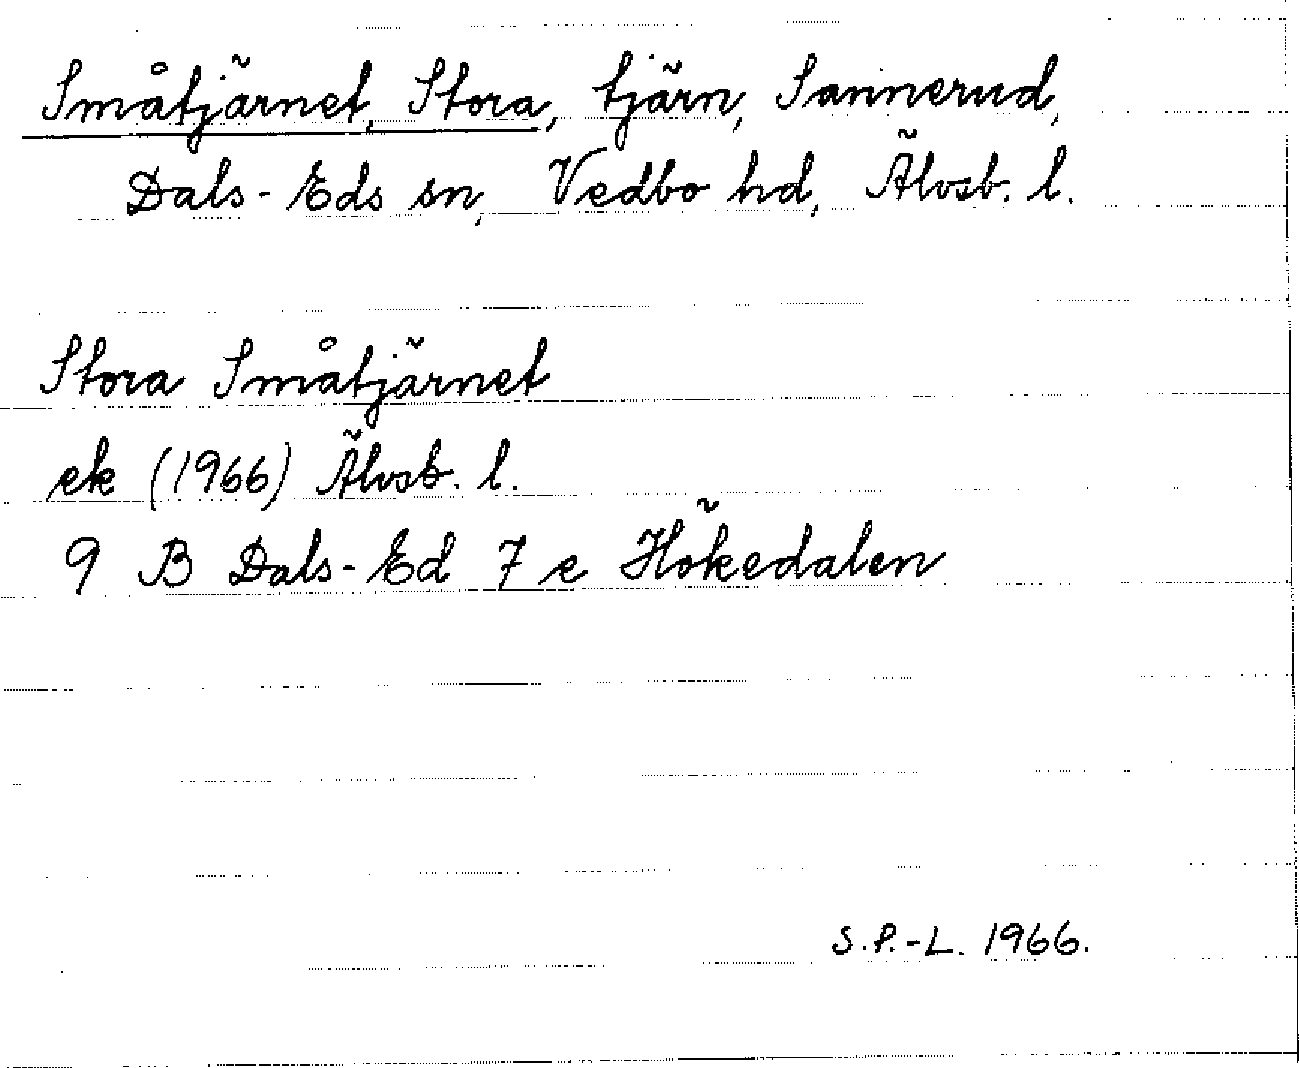 Småtjärnet, Stora, tjärn, Sannerud,
Dals-Eds sn, Vedbo hd, Älvsb. l.
Stora Småtjärnet
ek (1966) Älvsb. l.
9 B Dals-Ed 7 e Hökedalen
S.P.-L. 1966.